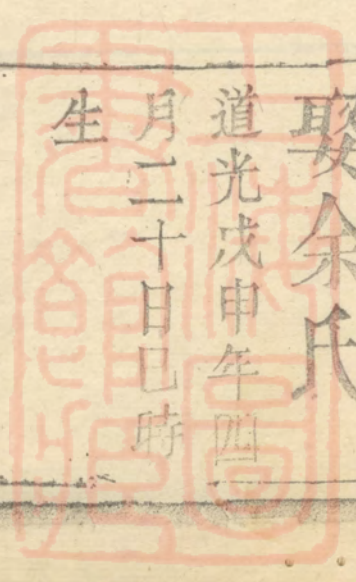 娶余氏
道光戊申年四
月二十日巳時
生